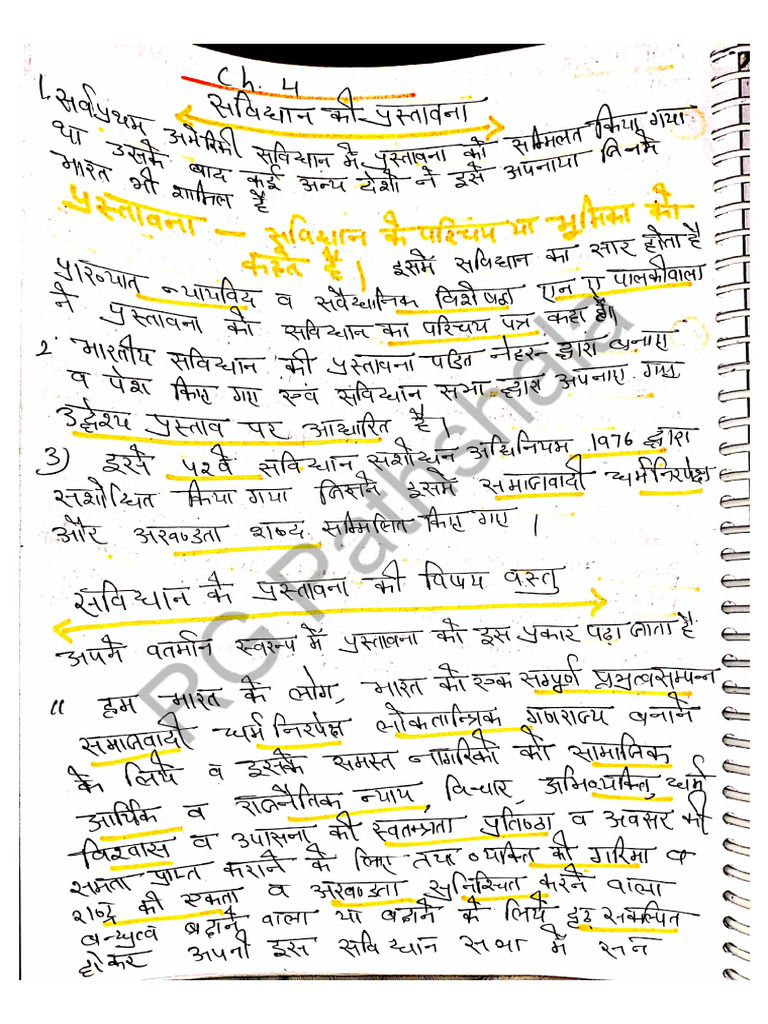 Ch. 4
सविधान की प्रस्तावना
1. सर्वप्रथम अमेरिकी सविधान में प्रस्तावना को सम्मिलत किया गया
था उसके बाद कई अन्य देशो ने इसे अपनाया जिनमे
भारत भी शामिल है
प्रस्तावना – सविधान के परिचय या भूमिका को
कहते है। इसमें सविधान का सार होता है
प्रख्यात न्यायविय व सवैधानिक विशेषज्ञ एन ए पालकीवाला
ने प्रस्तावना को सविधान का परिचय पत्र कहा है।
2. भारतीय सविधान की प्रस्तावना पंडित नेहरू द्वारा बनाए
व पेश किए गए एवं सविधान सभा द्वारा अपनाए गए
उद्देश्य प्रस्ताव पर आधारित है।
3) इसे ५२वे सविधान सशोधन अधिनियम 1976 द्वारा
सशोधित किया गया जिसने इसमें समाजवादी धर्मनिरपेक्ष
और अखण्डता शब्द सम्मिलित किए गए।
सविधान के प्रस्तावना की विषय वस्तु
अपने वर्तमान स्वरूप में प्रस्तावना को इस प्रकार पढ़ा जाता है
" हम भारत के लोग, भारत को एक सम्पूर्ण प्रभुत्वसम्पन्न
समाजवादी धर्म निरपेक्ष लोकतान्त्रिक गणराज्य बनाने
के लिये व इसके समस्त नागरिको को सामाजिक
आर्थिक व राजनैतिक न्याय, विचार, अभिव्यक्ति, धर्म
विश्वास व उपासना की स्वतन्त्रता प्रतिष्ठा व अवसर की
समता प्राप्त कराने के लिए तथा व्यक्ति की गरिमा व
राष्ट्र की एकता व अखण्डता सुनिश्चित करने वाला
बन्धुत्व बढ़ाने वाला या बढ़ाने के लिये दृढ़ सकल्पित
होकर अपनी इस सविधान सभा में
RG Pathshala